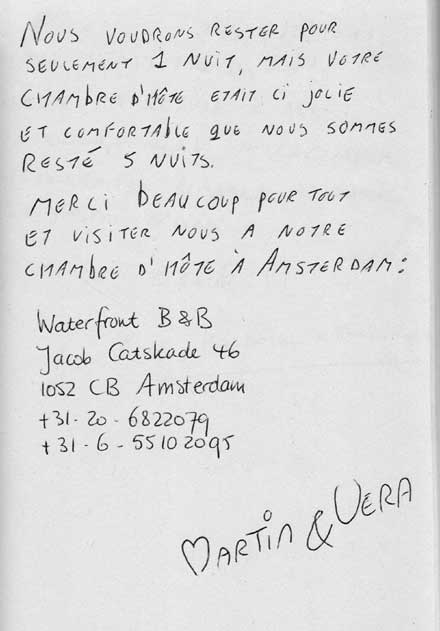 Nous voudrons rester pour
seulement 1 nuit, mais votre
chambre d'hôte etait ci jolie
et comfortable que nous sommes
resté 5 nuits.
Merci beaucoup pour tout
et visiter nous a notre
chambre d'hôte à Amsterdam:
Waterfront B&B
Jacob Catskade 46
1052 CB Amsterdam
+31-20-6822079
+31-6-55102095
Martin & Vera